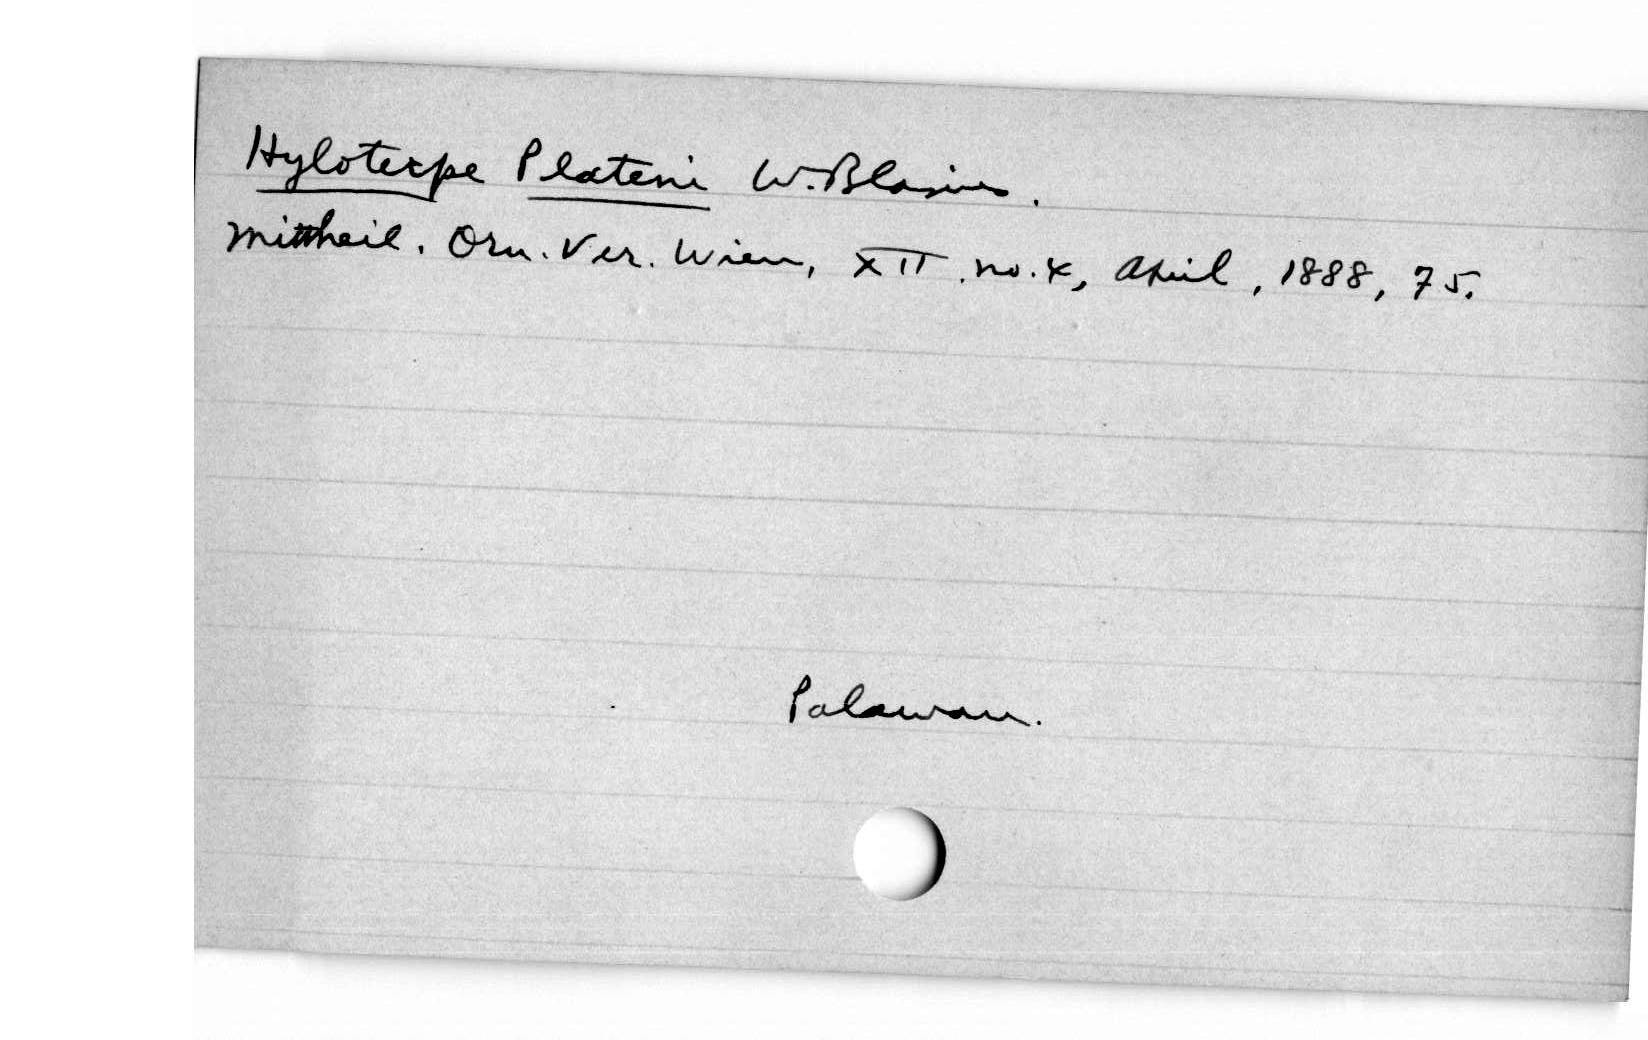 Hyloterpe Plateni W. Blasius.
Mittheil. Orn. Ver. Wien, XII. no. 4, April, 1888, 75.
Palawan.